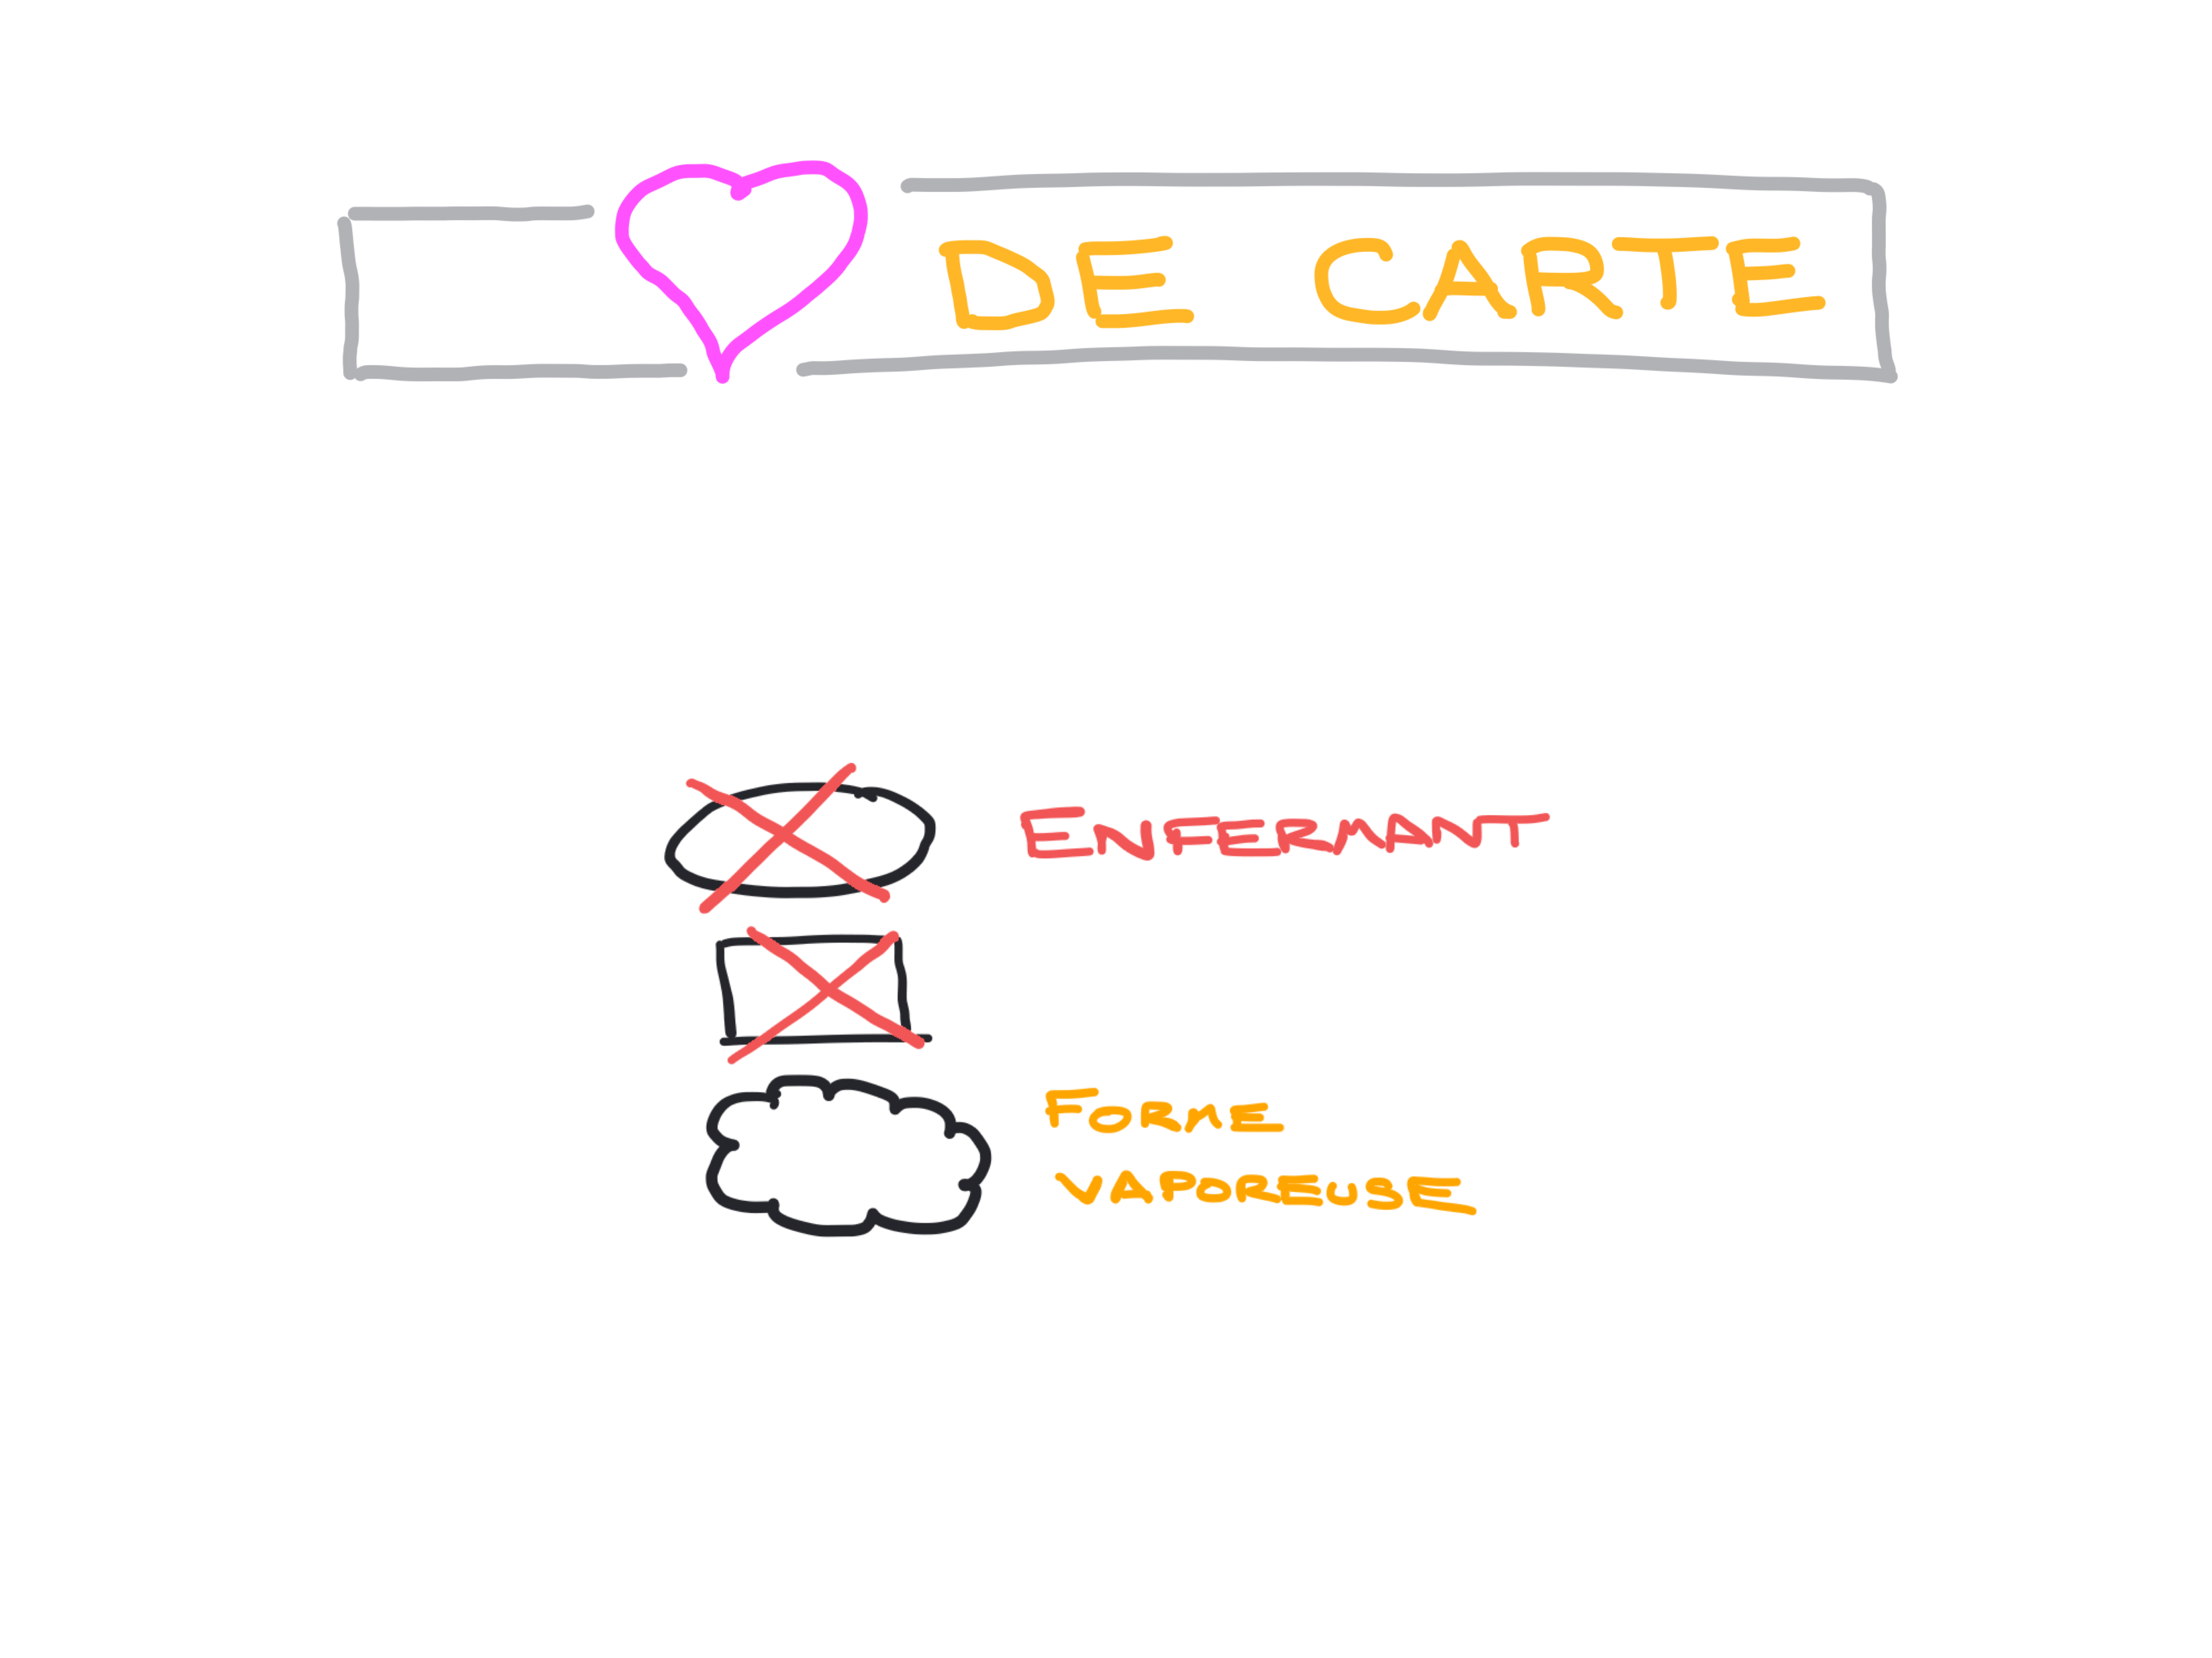 DE CARTE
ENFERMANT
FORME
VAPOREUSE